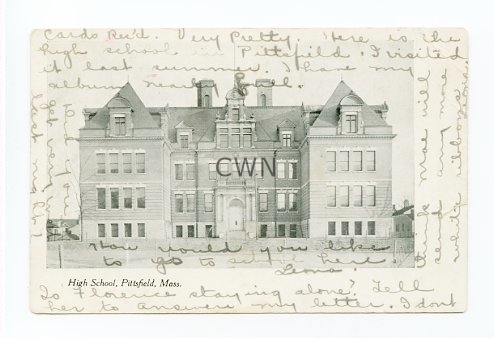 Cards Rec'd. Very Pretty. Here is the
high school in Pittsfield. I visited
it last summer. I have my
album nearly
CWN
How would you like
to go to school here
Leona.
High School, Pittsfield, Mass.
Is Florence staying alone? Tell
her to answere my letter. I dont
think mae will
send any more
white
Leona